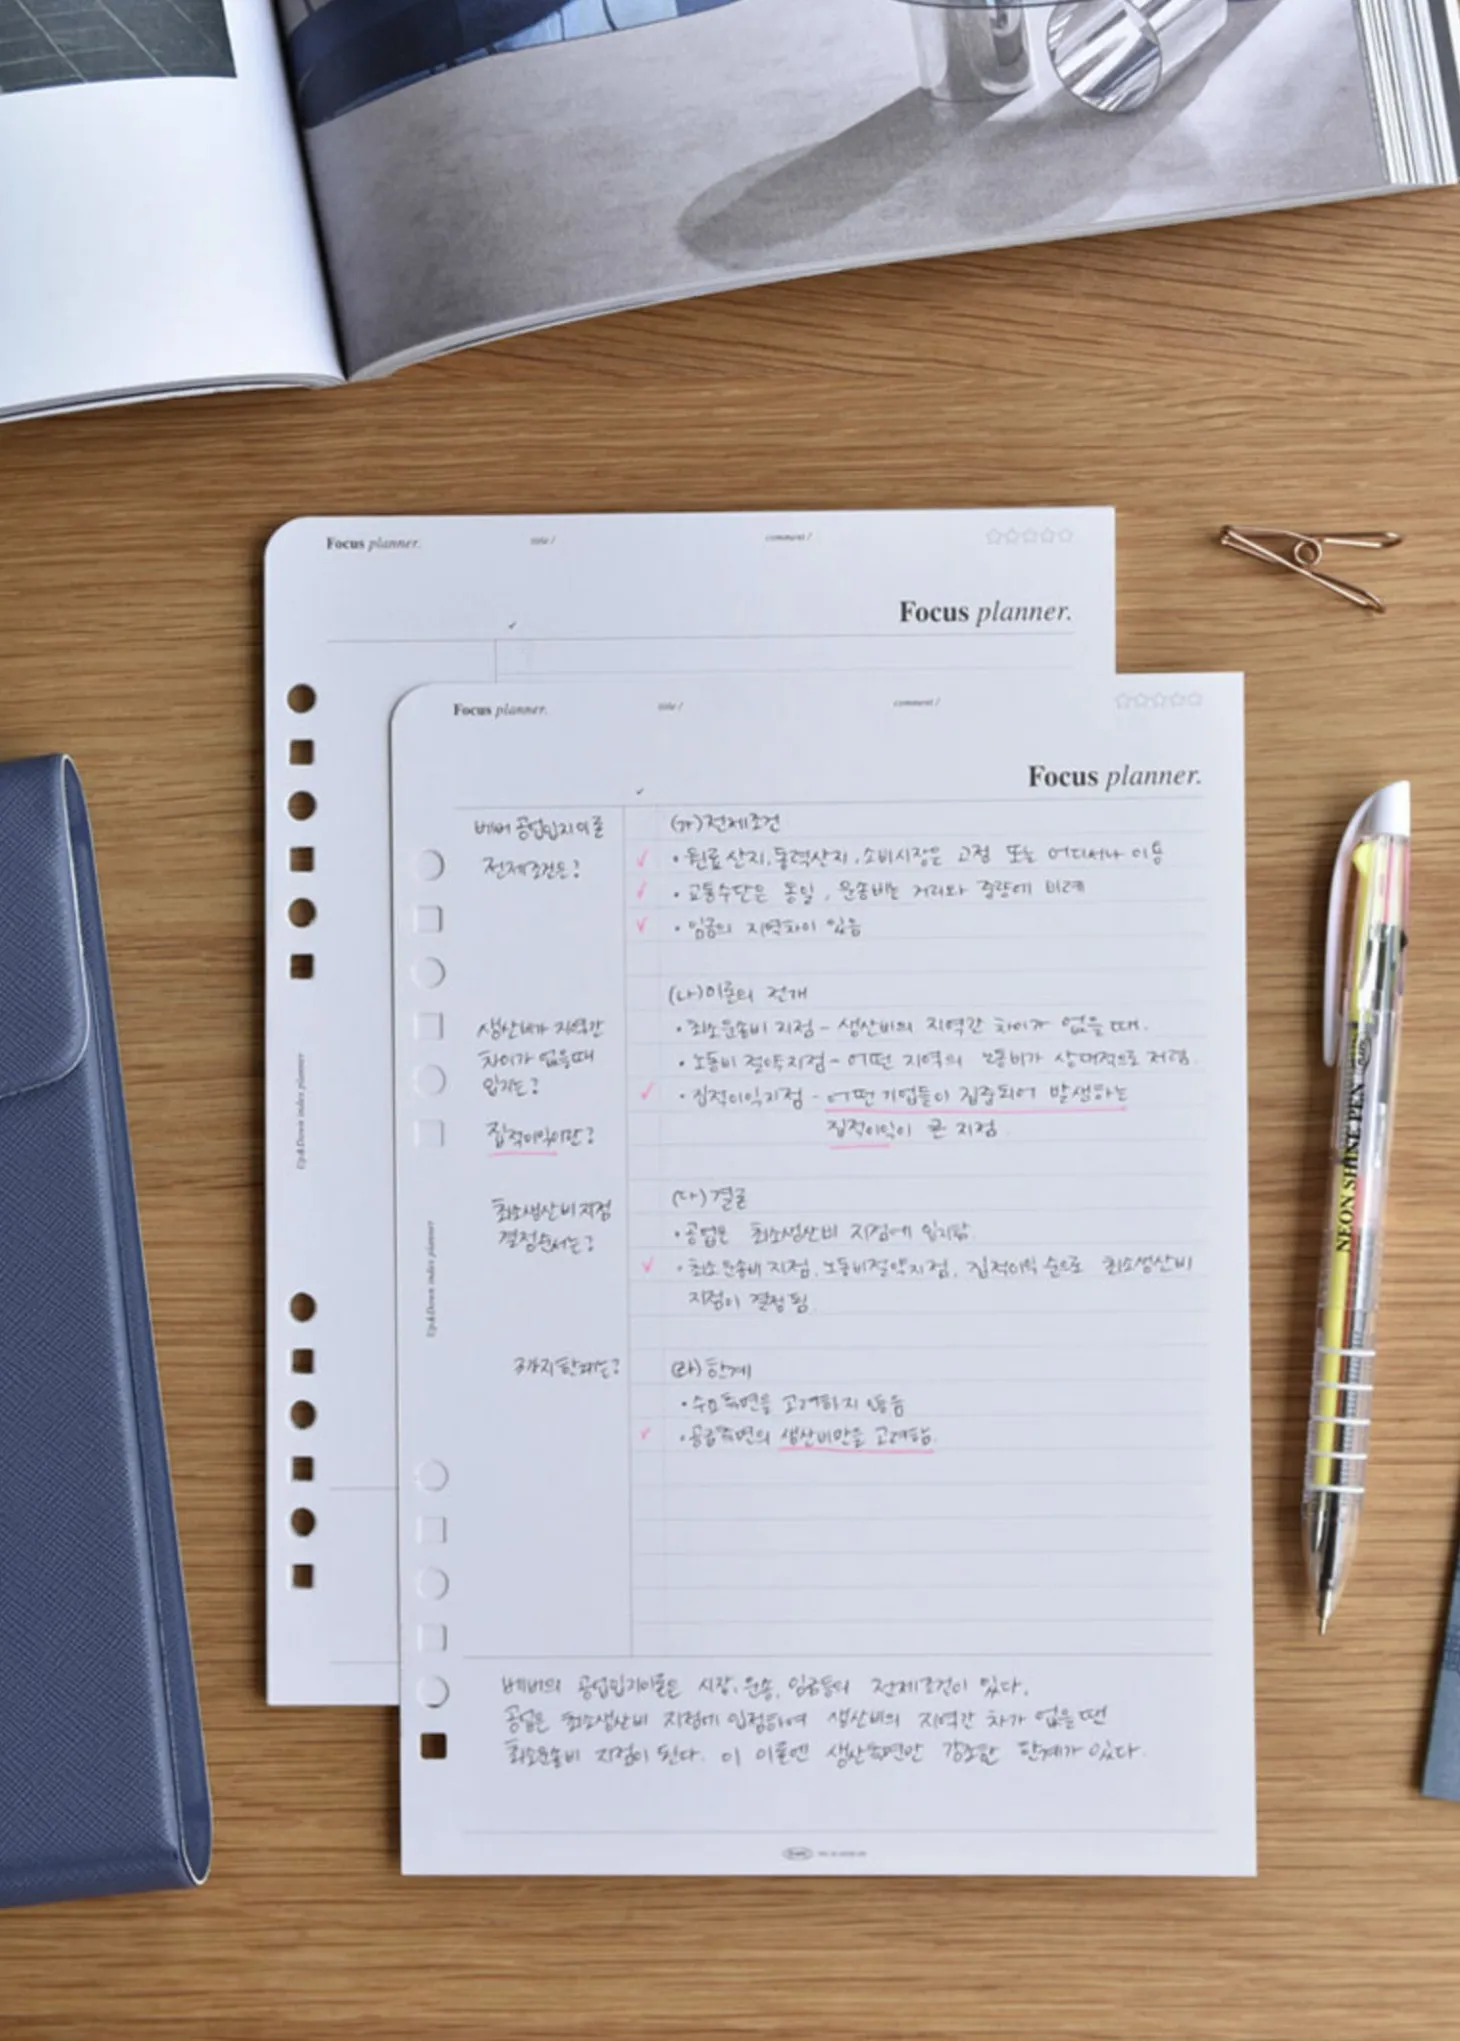 Focus planner.
title /
comment /
Focus planner.
Up&Down index planner
Focus planner.
title /
comment /
Focus planner.
베버 공업입지이론
전제조건은?
(가)전제조건
• 원료산지, 동력산지, 소비시장은 고정 또는 어디서나 이용
• 교통수단은 동일, 운송비는 거리와 중량에 비례
• 임금의 지역차이 있음
생산비가 지역간
차이가 없을때
입지는?
집적이익이란?
(나)이론의 전개
• 최소운송비 지점 - 생산비의 지역간 차이가 없을 때.
• 노동비 절약지점 - 어떤 지역의 노동비가 상대적으로 저렴.
• 집적이익지점 - 어떤 기업들이 집중되어 발생하는
집적이익이 큰 지점.
최소생산비 지점
결정순서는?
(다)결론
• 공업은 최소생산비 지점에 입지함.
• 최소운송비 지점, 노동비절약지점, 집적이익 순으로 최소생산비
지점이 결정됨.
3가지 한계는?
(라)한계
• 수요측면을 고려하지 않음
• 공급측면의 생산비만을 고려함.
Up&Down index planner
베버의 공업입지이론은 시장, 운송, 임금등의 전제조건이 있다.
공업은 최소생산비 지점에 입점하여 생산비의 지역간 차가 없을땐
최소운송비 지점이 된다. 이 이론엔 생산측면만 강조한 한계가 있다.
NEON SHINE PEN